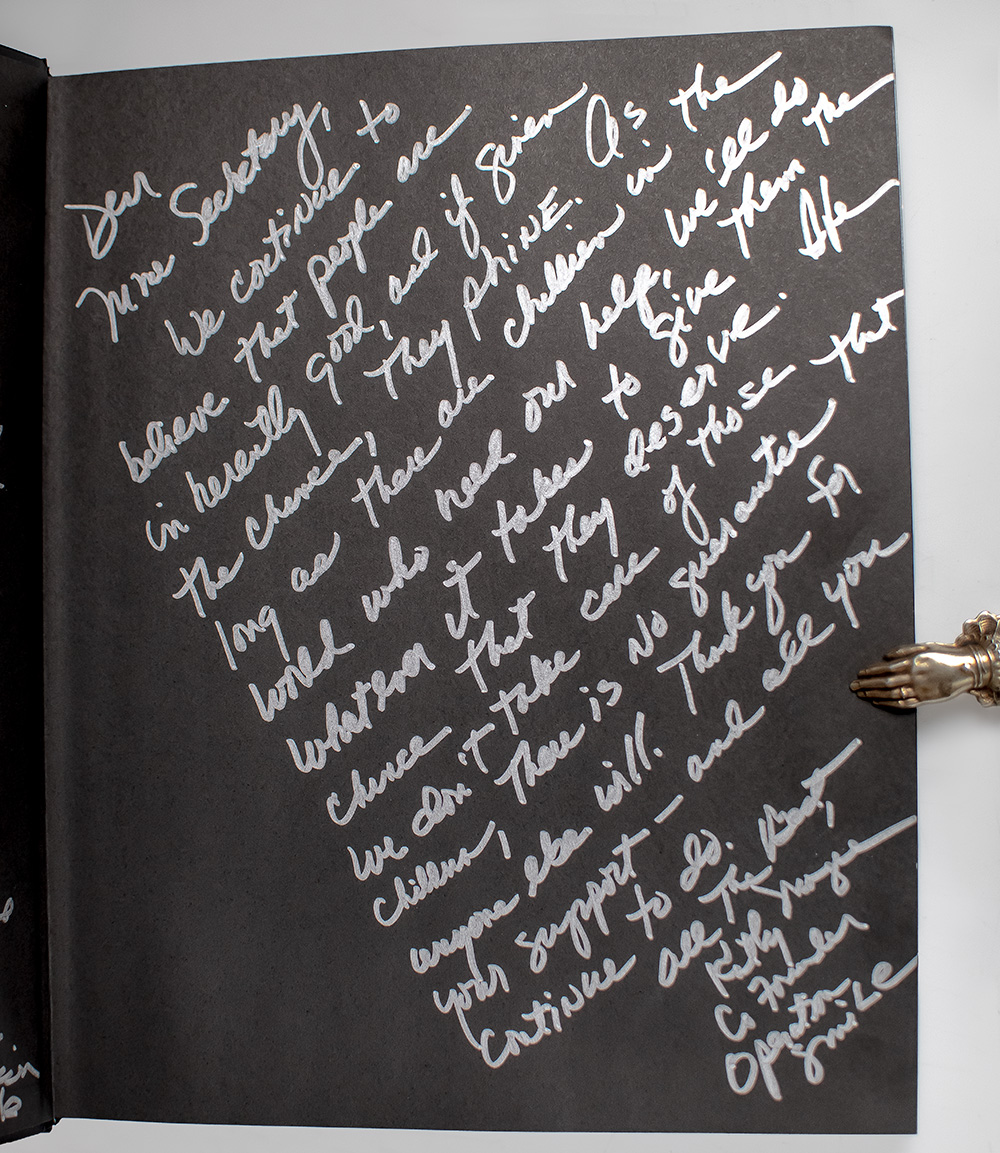 Dear
Mme Secretary,
We continue to
believe that people are
inherently good, and if given
the chance, they shine. As the
long as there are children in
world who need our help, we'll do
whatever it takes to give them the
chance that they deserve.
we don't take care of those that
children, there is no guarantee
anyone else will. Thank you for
your support - and all you
continue to do.
All the Best,
Kathy Magee
Co Founder
Operation
Smile